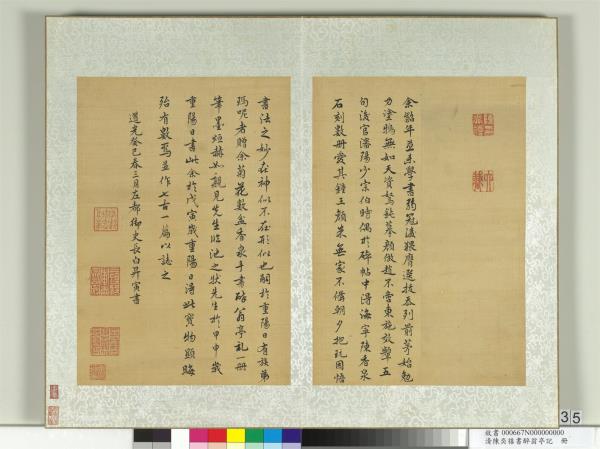 余髫年亟系學書弱冠後猥膺選拔忝列前茅始勉
力塗鴉無如天資駑鈍摹顏倣趙不啻東施效顰五
旬後官瀋陽少宗伯時偶於碑帖中得海寧陳香泉
石刻數冊愛其鍾王顏米無家不備朝夕把玩因悟
書法之妙在神似不在形似也嗣於重陽日有族弟
瑪呢者贈余菊花數盆香泉手書醉翁亭記一冊
筆墨烜赫如親見先生臨池之狀先生於甲申歲
重陽日書此余於戊寅歲重陽日得此寶物顯晦
殆有數焉並作七古一篇以誌之
道光癸巳春三月左都御史長白昇寅書
35
故書 000667N000000000
清陳奕禧書醉翁亭記 冊